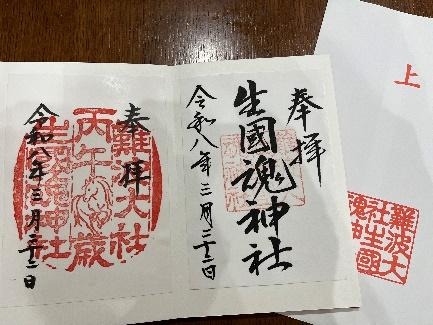 奉拝
生國魂神社
令和八年三月二十二日
奉拝
難波大社
丙午歳
生國魂神社
令和八年三月二十二日
上
難波大
社生國
魂神